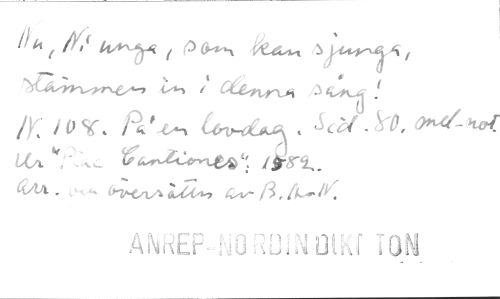 Nu, Ni unga, som kan sjunga,
stämmen in i denna sång!
N. 108. På en lovdag. Sid. 80. mel-not
ur "Piae Cantiones": 1582.
arr. och översätts av B. A-N.
ANREP-NORDIN DIKT TON